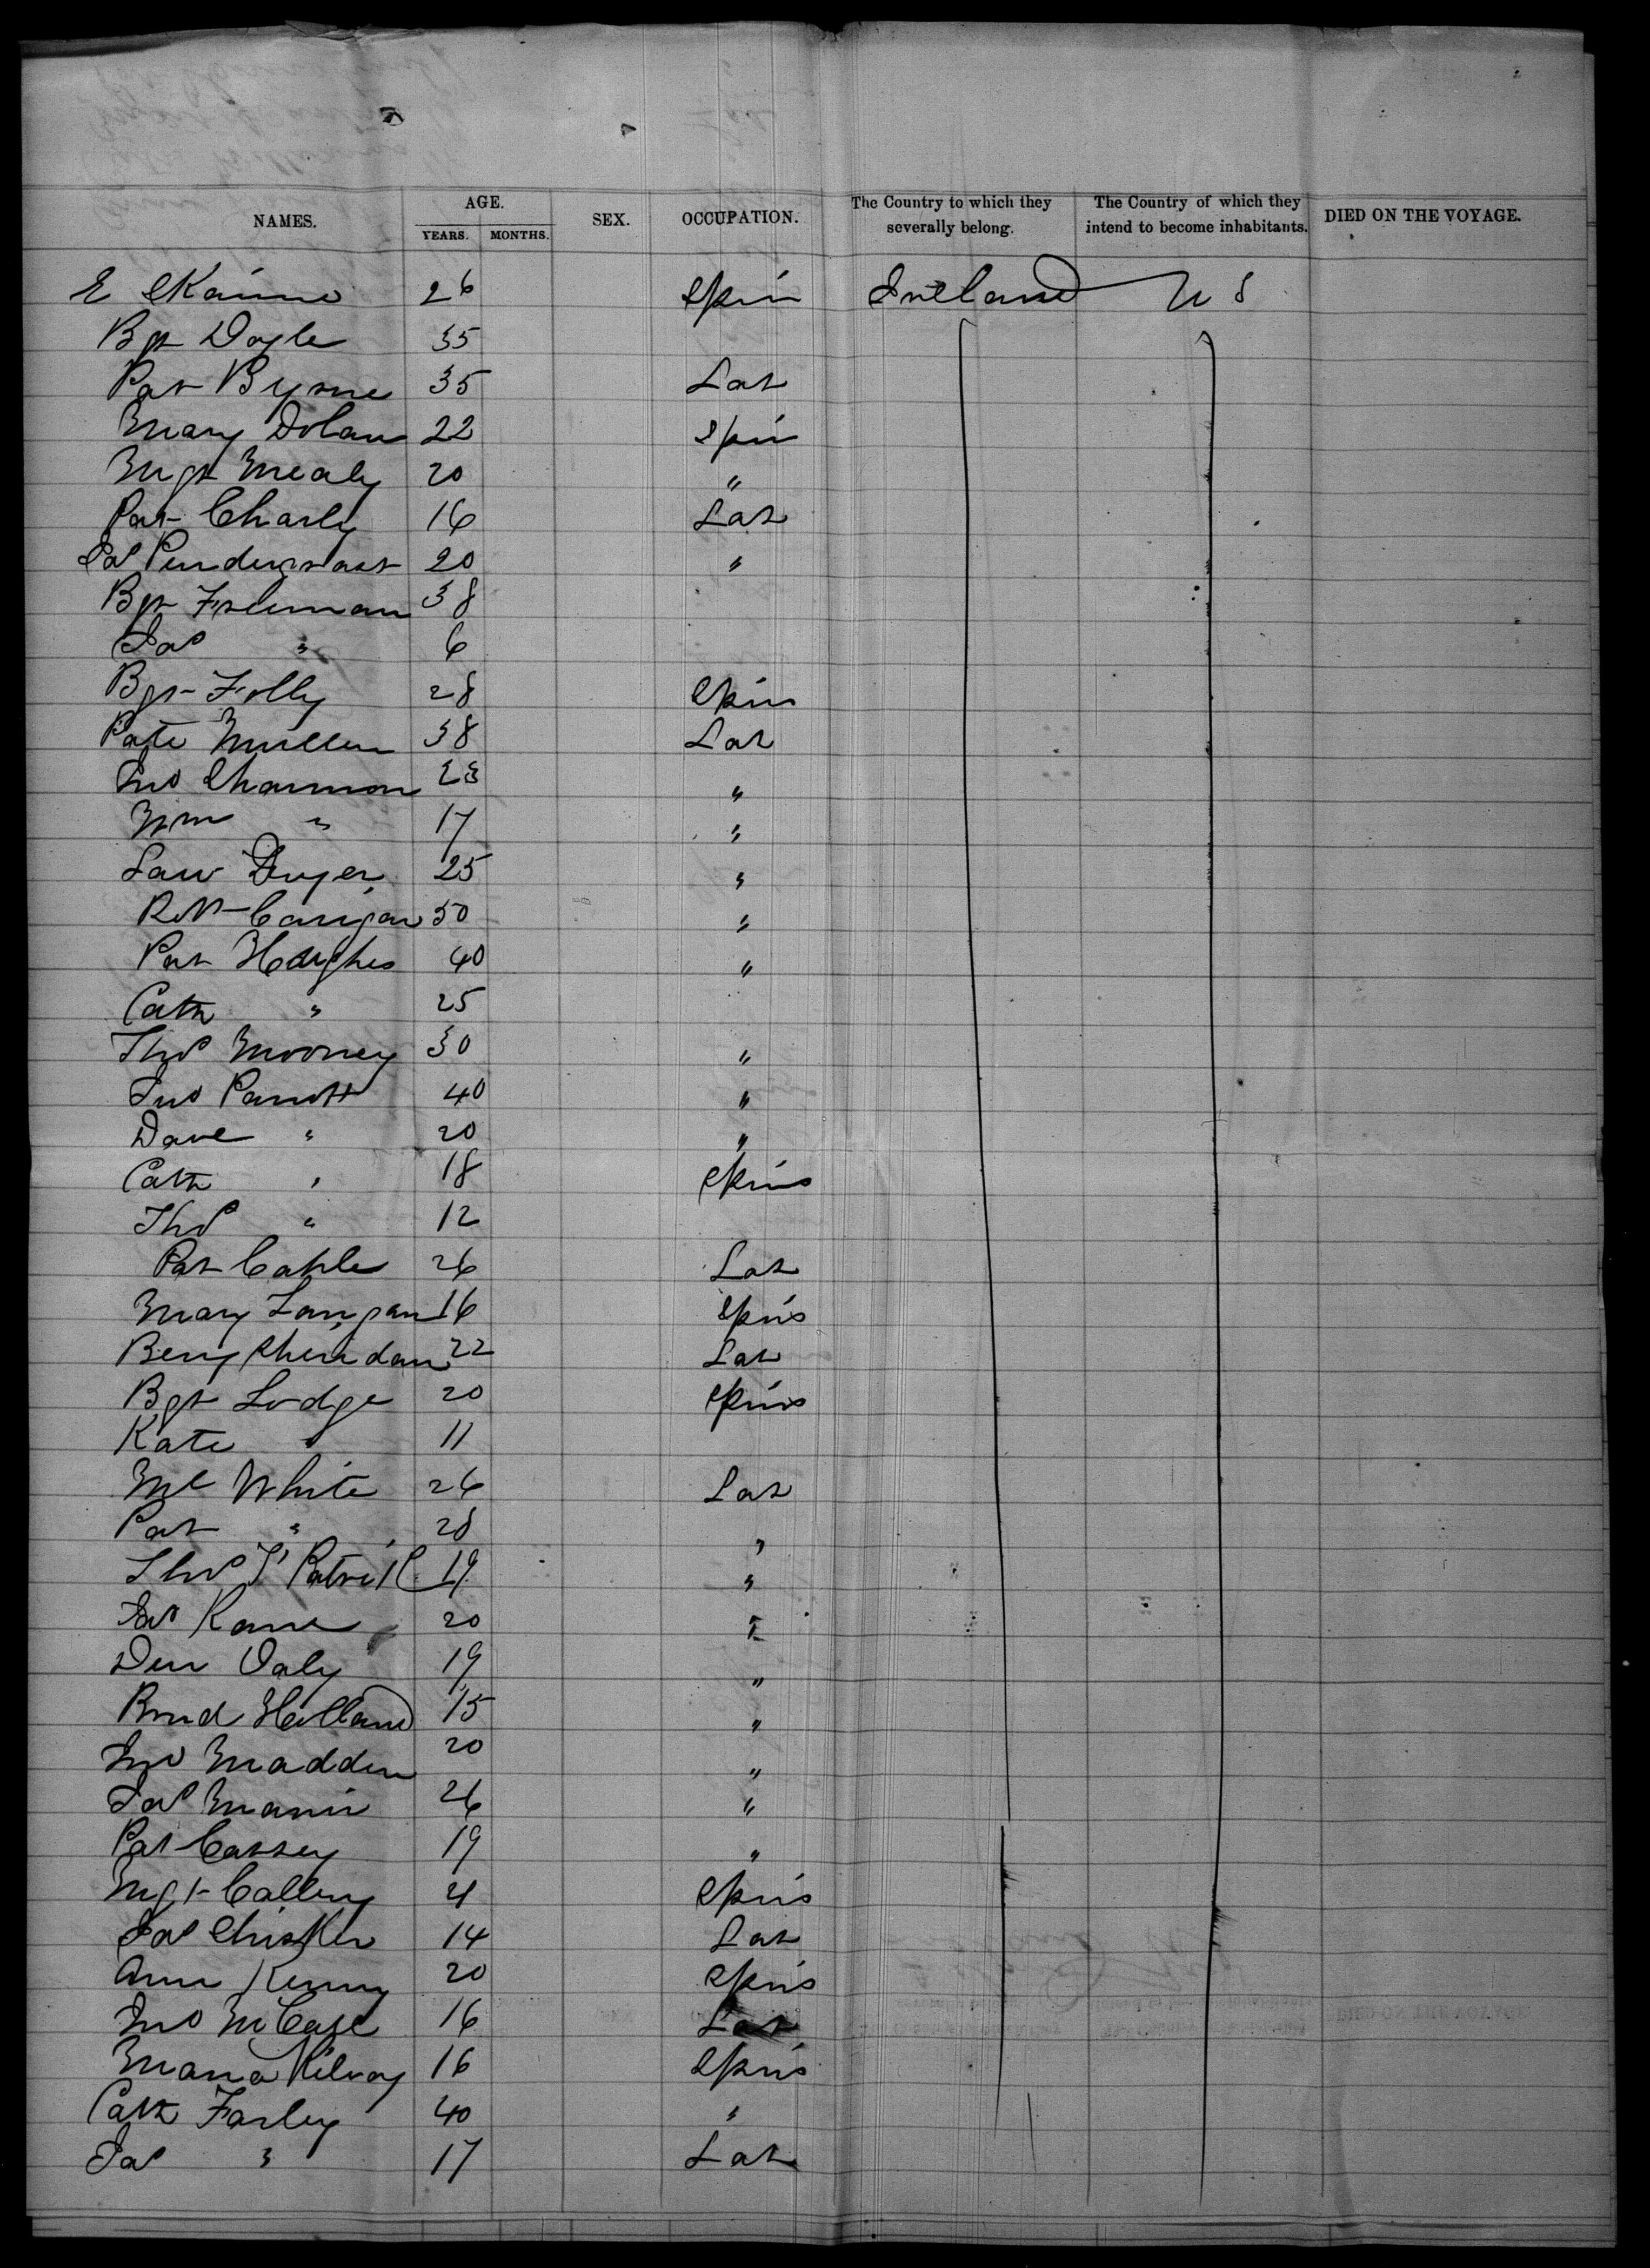 NAMES. AGE. YEARS. MONTHS. SEX. OCCUPATION. The Country to which they severally belong. The Country of which they intend to become inhabitants. DIED ON THE VOYAGE.
E 26 Spin Ireland U S
Bgt Doyle 35
Pat Byrne 35 Lab
Mary Dolan 22 Spin
Mgt Mealy 20 "
Pat Charly 16 Lab
Jas Pendergrast 20 "
Bgt Freeman 38
Jas " 6
Bgt Folly 28 Spin
Pate Mullen 38 Lab
Jno Shannon 23 "
Wm " 17 "
Law Dwyer 25 "
Robt 50 "
Pat Hughes 40 "
Cath " 25
Thos Mooney 30 "
Jno Parrott 40 "
Dave " 20 "
Cath " 18 Spins
Thos " 12
Pat Cahle 26 Lab
Mary Langan 16 Spins
Benj Sheridan 22 Lab
Bgt Lodge 20 Spins
Kate " 11
Ml White 26 Lab
Pat " 28 "
Thos F Patrick 19 "
Kane 20 "
Den Daly 19 "
Holland 15 "
Jno Madden 20 "
Jas 26 "
Pat Cassey 19 "
Mgt Callery 21 Spins
Jas 14 Lab
Ann Kenny 20 Spins
Jno McCase 16 Lab
Maria Kilroy 16 Spins
Cath Farley 40 "
Jas " 17 Lab